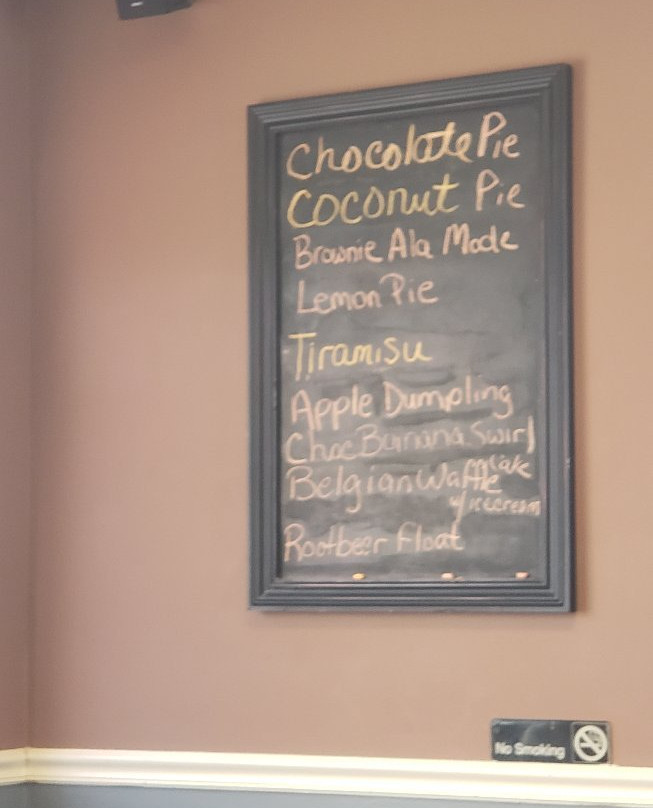 Chocolate Pie
Coconut Pie
Brownie Ala Mode
Lemon Pie
Tiramisu
Apple Dumpling
Choc Banana Swirl
Cake
Belgian Waffle
w/ icecream
Rootbeer Float
No Smoking